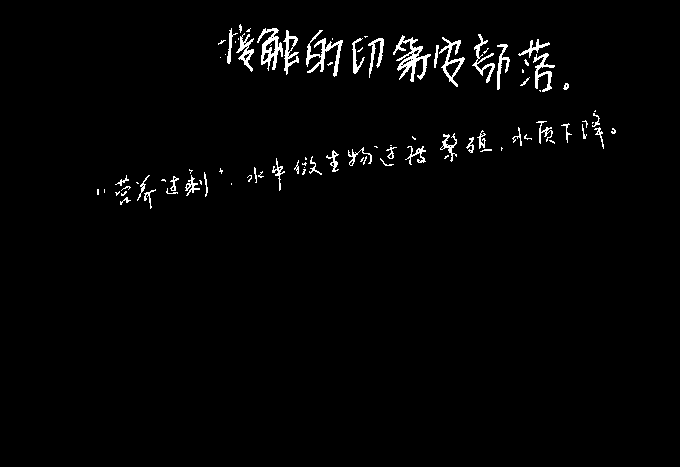 接触的印第安部落。
"营养过剩",水中微生物过度繁殖,水质下降。